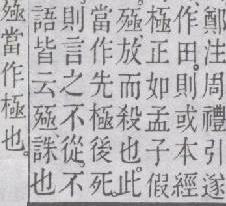 鄭注周禮引遂
作田則或本經
極正如孟子假
殛放而殺也此
當作先極後死
則言之不從不
語皆云殛誅也
殛當作極也